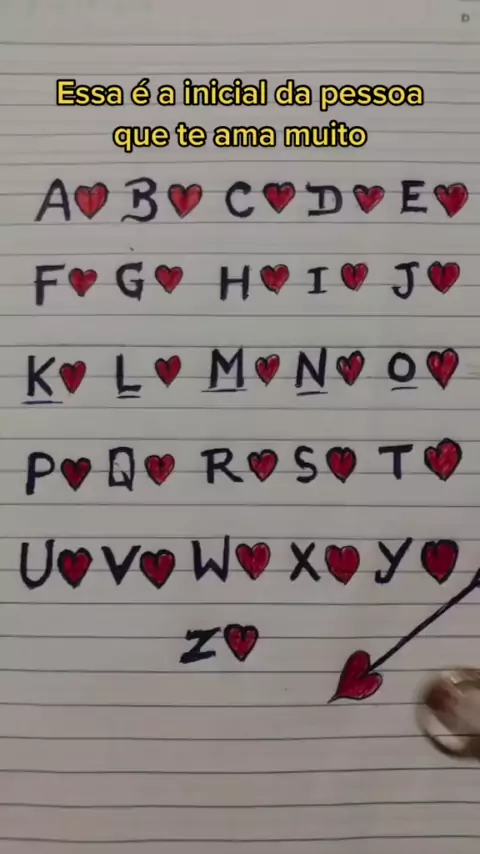 Essa é a inicial da pessoa
que te ama muito
A B C D E
F G H I J
K L M N O
P Q R S T
U V W X Y
Z